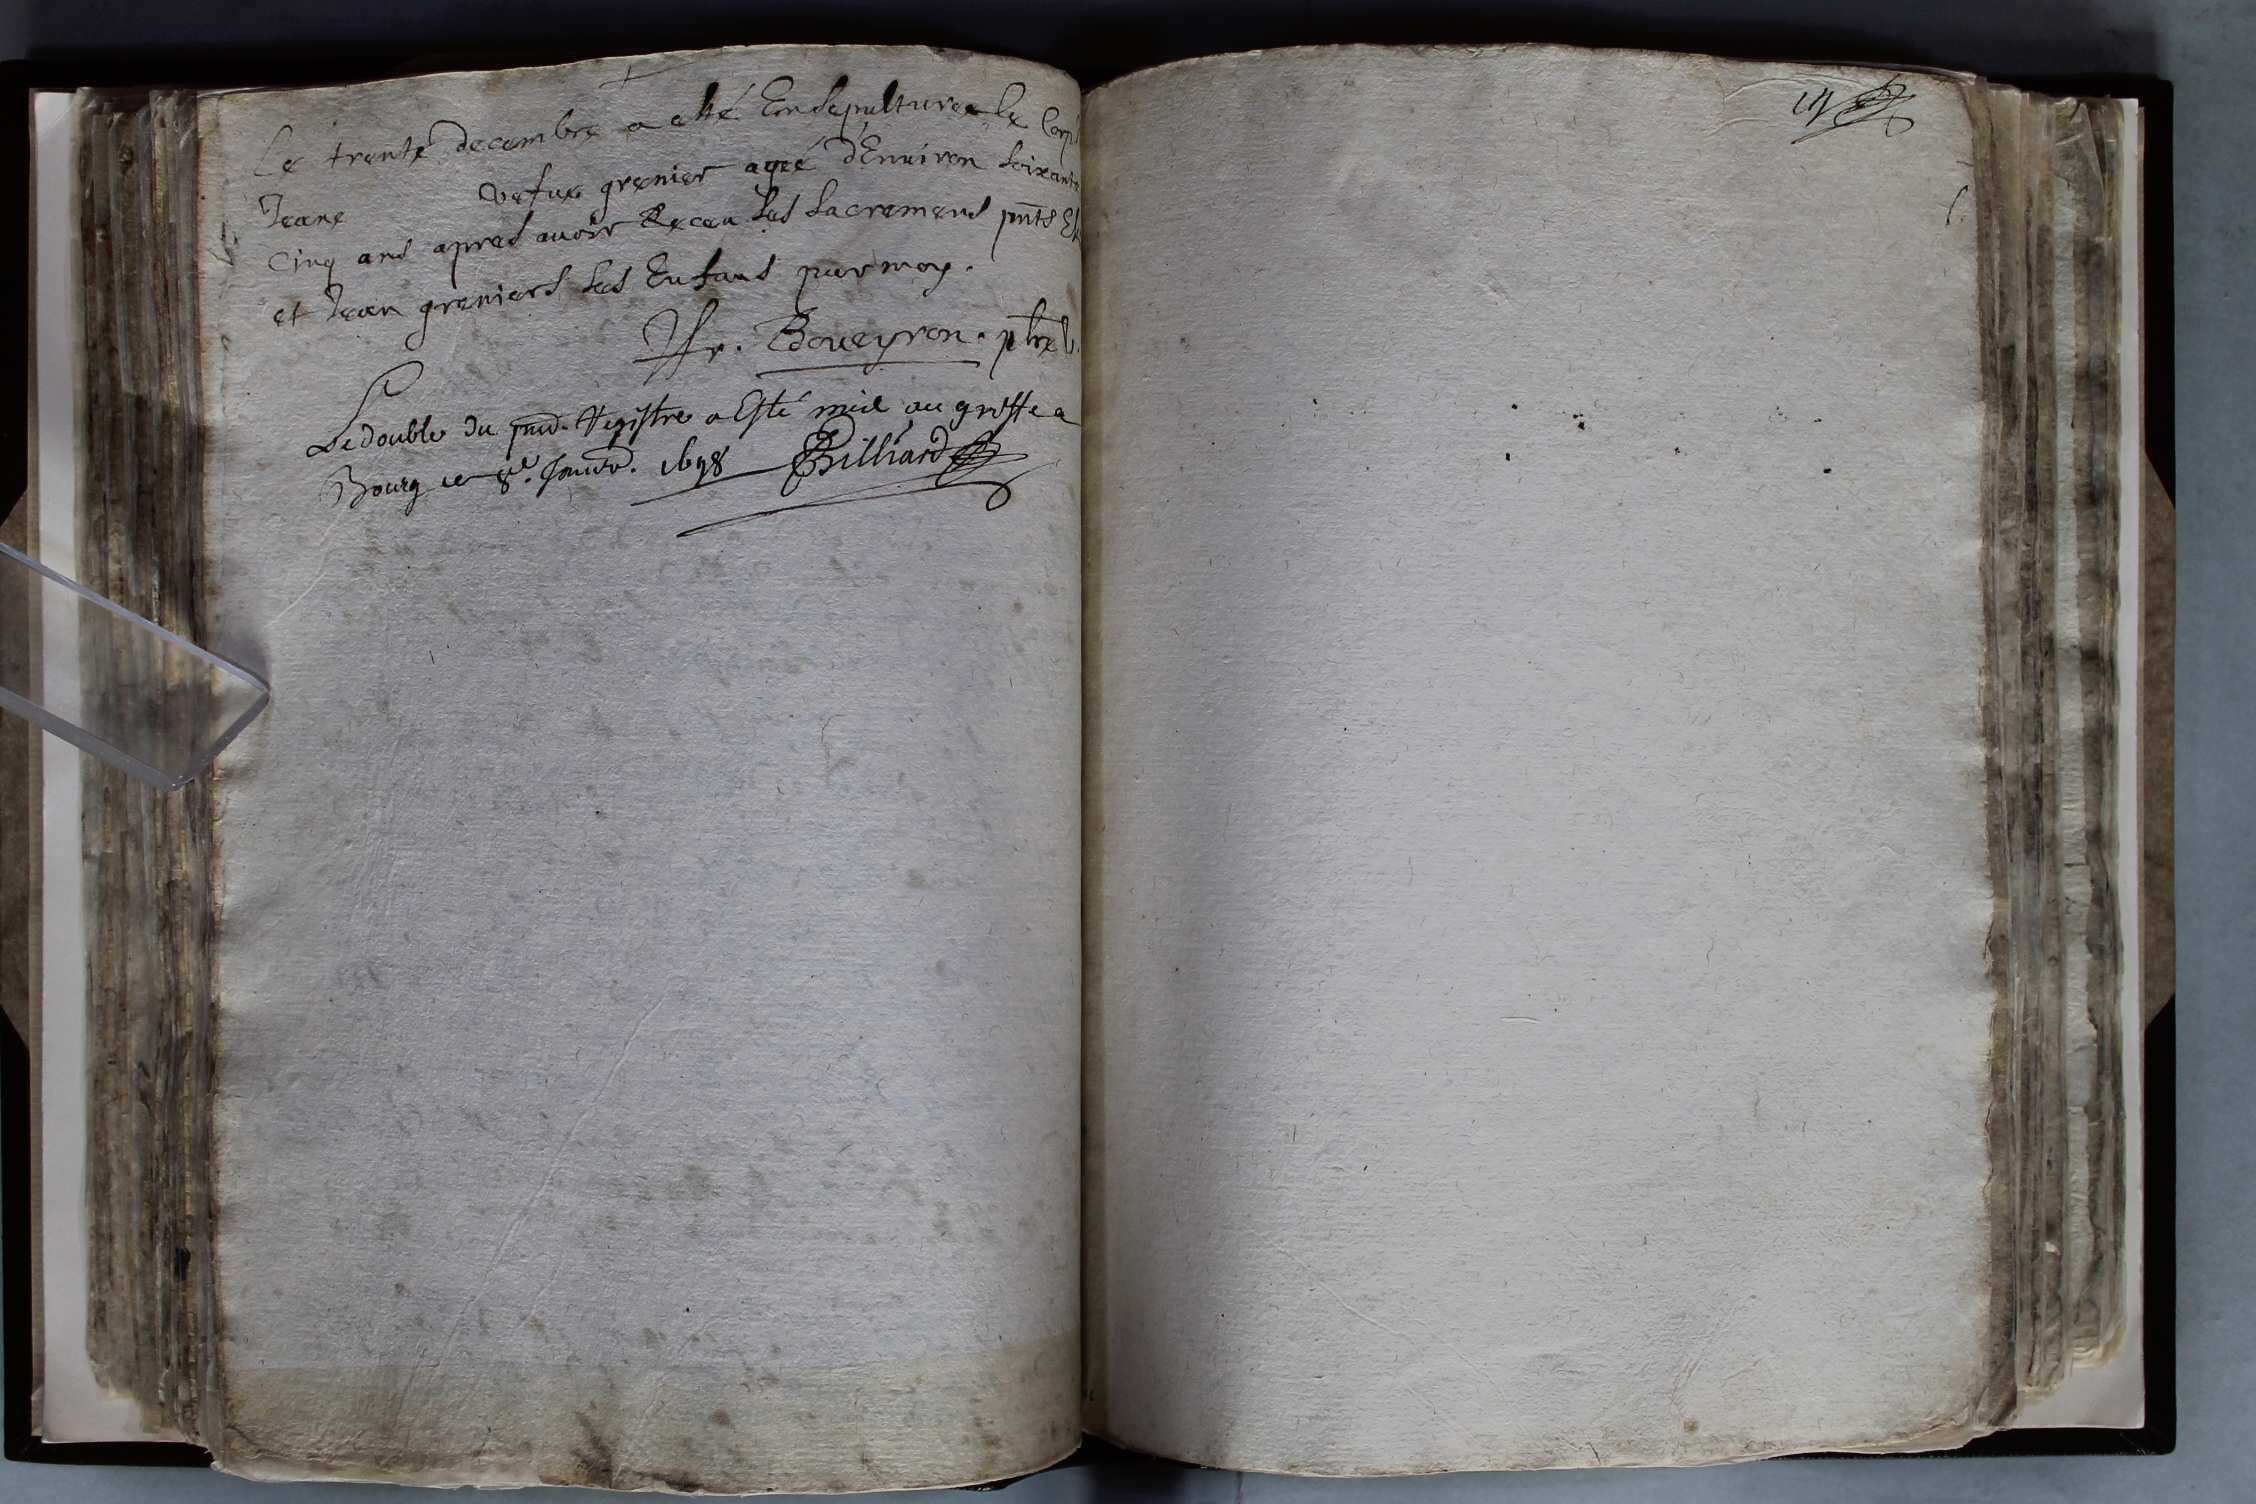 Le trente decembre a esté Ensepulturee le Corps
Jeane vefue grenier ageé d'Enuiron soixante
Cinq ans apres auoir Receu les sacremens pnts
et Jean greniers ses Enfans par moy.
Fr. Boueyron. ptre
Le double du pnt. Registre a Esté mis au greffe a
Bourg ce 8e. Januier. 1698 Billiard